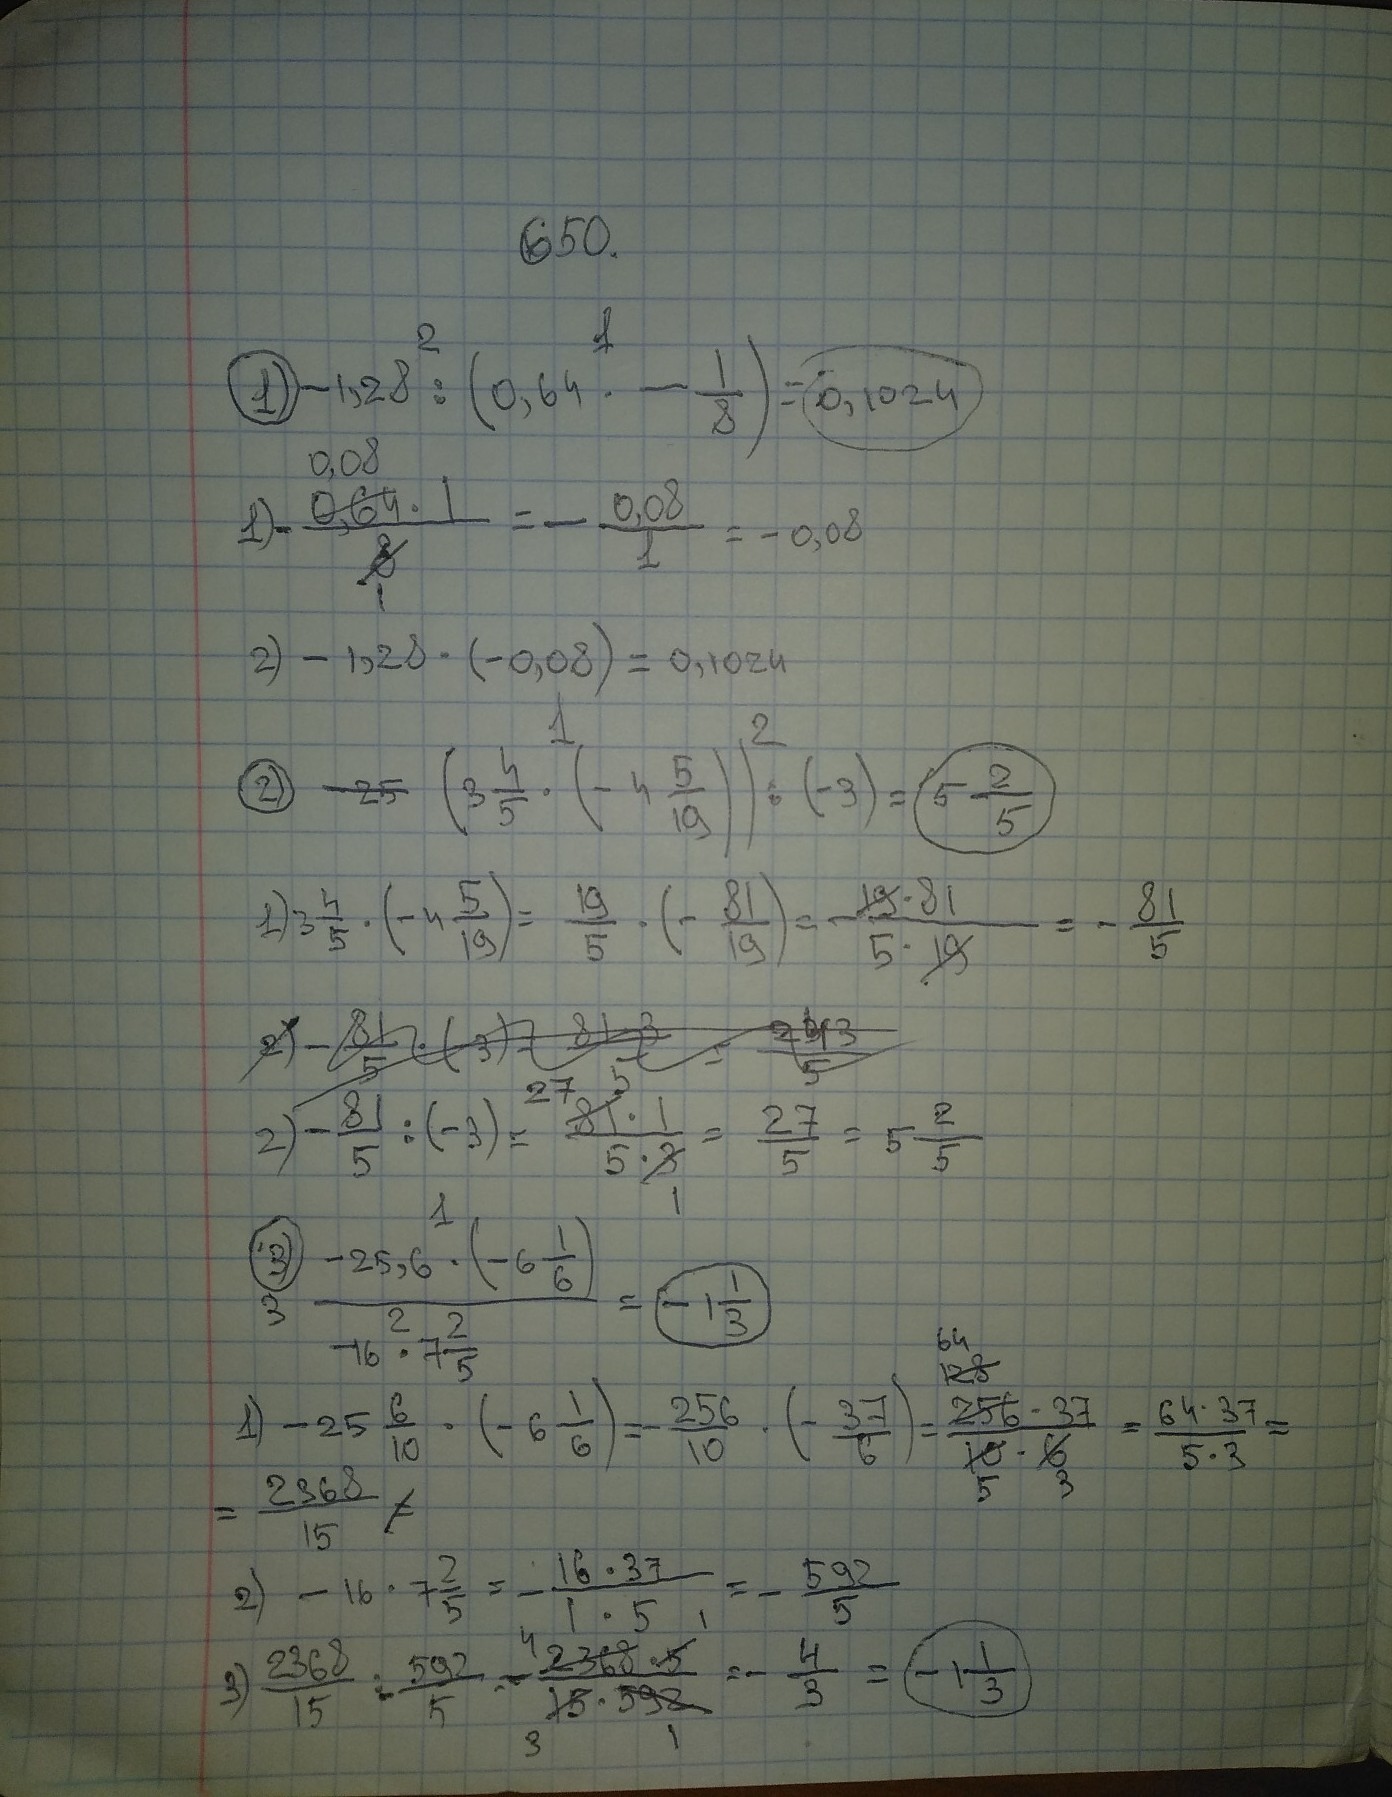 650.
2 1
1) -1,28 : (0,64 · - 1/8) = 0,1024
0,08
1) - 0,64 · 1 / 8 = - 0,08 / 1 = -0,08
1
2) - 1,28 · (-0,08) = 0,1024
1 2
2) -25 (3 4/5 · (- 4 5/19)) : (-3) = 5 2/5
1) 3 4/5 · (- 4 5/19) = 19/5 · (- 81/19) = - 19 · 81 / 5 · 19 = - 81/5
27
2) - 81/5 : (-3) = 81 · 1 / 5 · 3 = 27/5 = 5 2/5
1
1
3) -25,6 · (-6 1/6)
3 = -1 1/3
2
-16 · 7 2/5
64
128
1) -25 6/10 · (-6 1/6) = - 256/10 · (- 37/6) = 256 · 37 / 10 · 6 = 64 · 37 / 5 · 3 =
5 3
= 2368/15
2) - 16 · 7 2/5 = - 16 · 37 / 1 · 5 = - 592/5
4 1
3) 2368/15 : - 592/5 = - 2368 · 5 / 15 · 592 = - 4/3 = -1 1/3
3 1